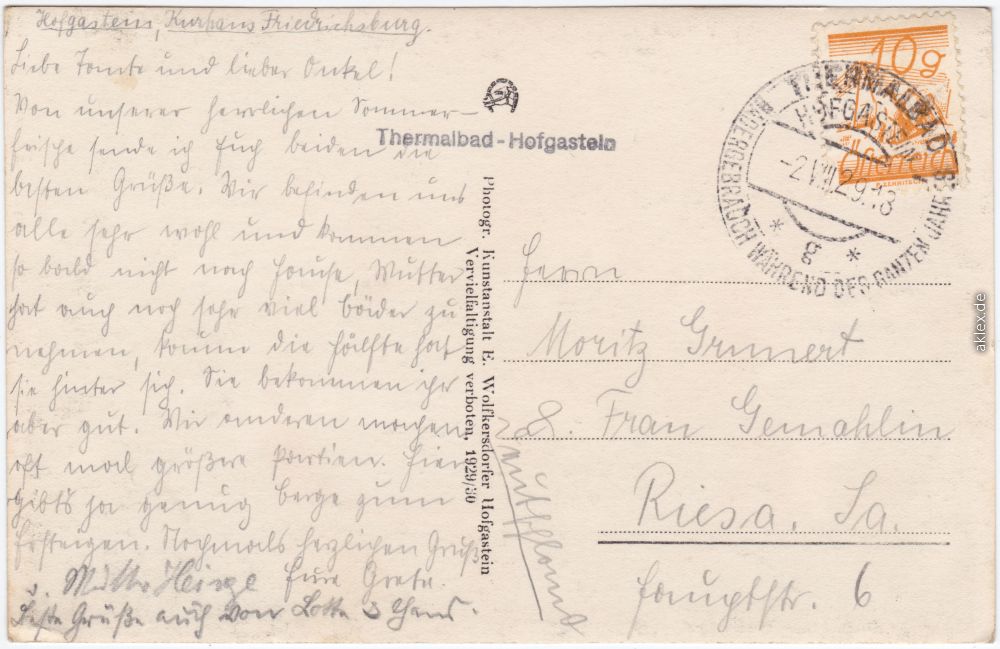 Hofgastein, Kurhaus Friedrichsburg.
Liebe Tante und lieber Onkel!
Von unserer herrlichen Sommer-
frische sende ich Euch beiden die
besten Grüße. Wir befinden uns
alle sehr wohl und kommen
so bald nicht nach Hause, Mutter
hat auch noch sehr viel Bäder zu
nehmen, kaum die Hälfte hat
sie hinter sich. Sie bekommen ihr
aber gut. Wir anderen machen
oft mal größere Partien. Hier
gibts ja genug Berge zum
Ersteigen. Nochmals herzlichen Gruß
Eure Grete.
u. Mutter
Beste Grüße auch von Lotte u Hans.
Thermalbad-Hofgastein
Photogr. Kunstanstalt E. Wolfkersdorfer Hofgastein
Vervielfältigung verboten, 1929/30
10g
Österreich
THERMALBAD
HOFGASTEIN
-2.VIII.29.18
* g *
WINTERGEBRAUCH WÄHREND DES GANZEN JAHRES
Herrn
Moritz Grunert
&. Frau Gemahlin
Riesa. Sa.
Hauptstr. 6
Deutschland
aklex.de